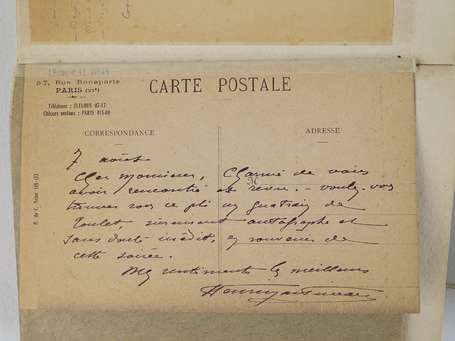 57, Rue Bonaparte
PARIS (VIe)
Téléphone : FLEURUS 07-17
Chèques postaux : PARIS
CARTE POSTALE
CORRESPONDANCE
ADRESSE
7 août
Cher monsieur, Charmé de vous
avoir rencontré et revu. - Voulez-vous
trouver sous ce pli un quatrain de
Toulet, sûrement autographe et
sans doute inédit, en souvenir de
cette soirée.
Mes sentiments les meilleurs
Henri Martineau